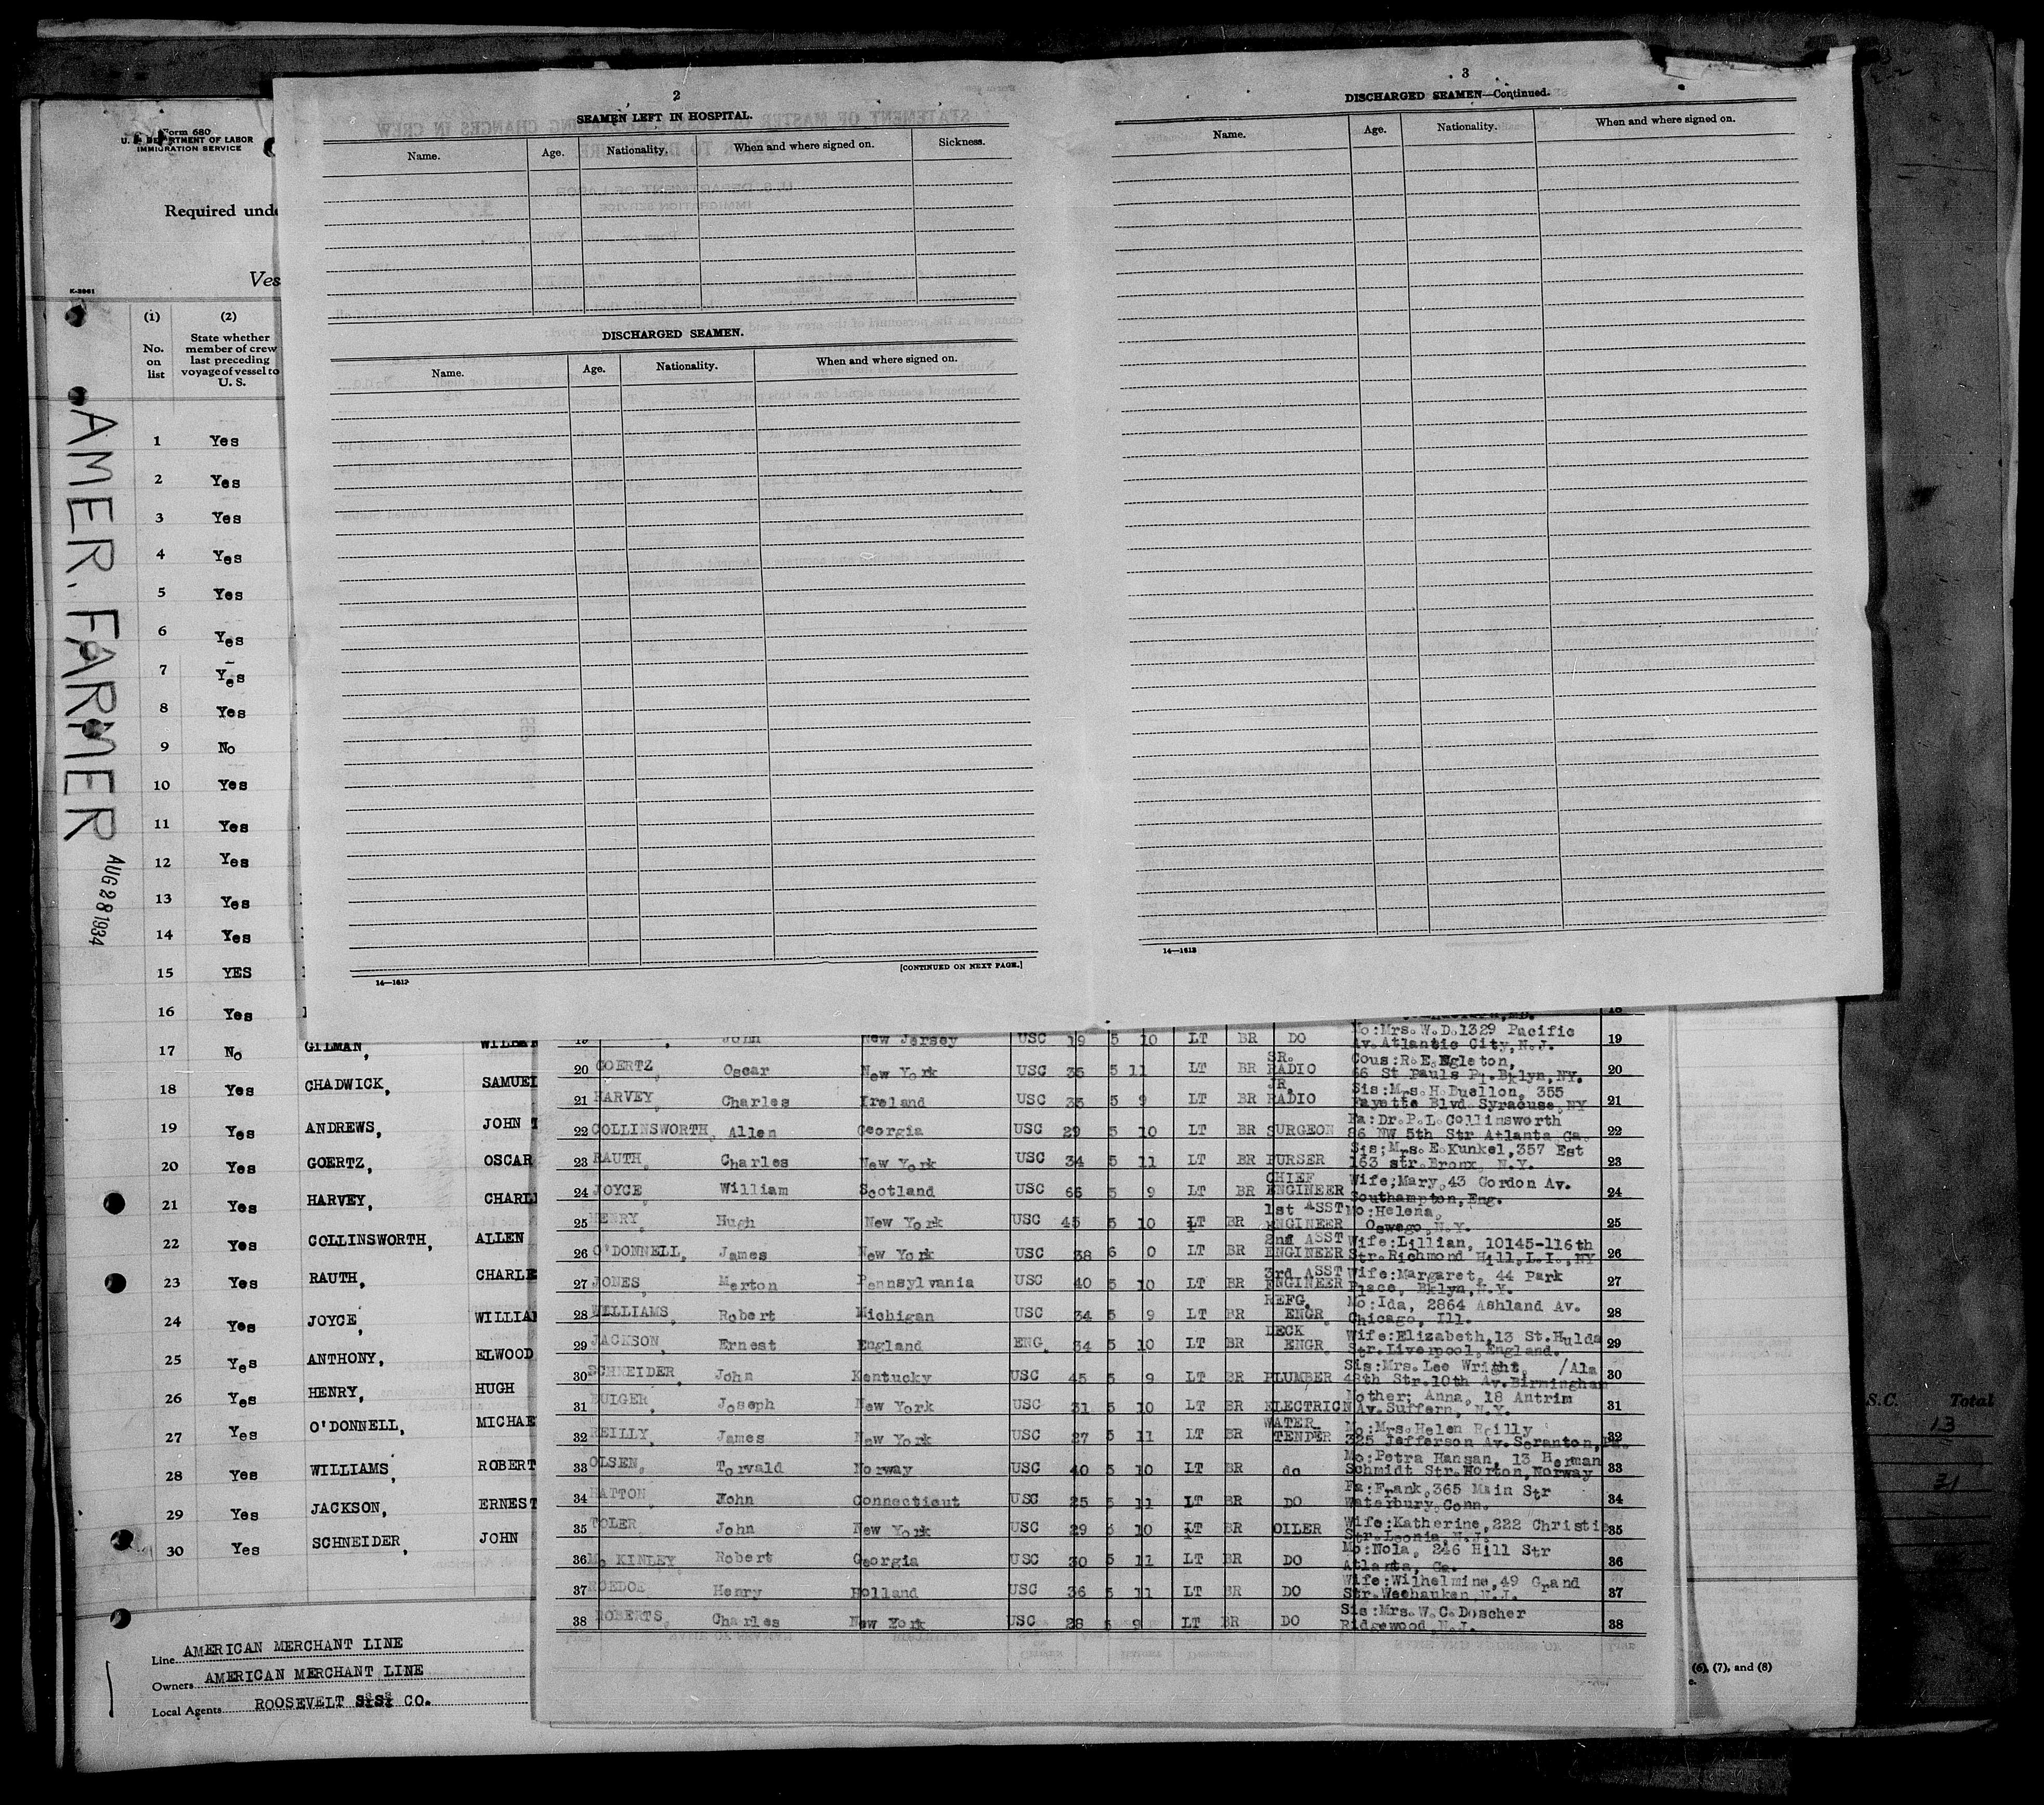 Form 680
U. S. DEPARTMENT OF LABOR
IMMIGRATION SERVICE
Required unde
Ves
K-2061
(1)
No.
on
list
(2)
State whether
member of crew
last preceding
voyage of vessel to
U. S.
AMER. FARMER
AUG 28 1934
2
SEAMEN LEFT IN HOSPITAL.
Name. Age. Nationality. When and where signed on. Sickness.
DISCHARGED SEAMEN.
Name. Age. Nationality. When and where signed on.
[CONTINUED ON NEXT PAGE.]
14—1613
3
DISCHARGED SEAMEN—Continued.
Name. Age. Nationality. When and where signed on.
14—1613
1 Yes
2 Yes
3 Yes
4 Yes
5 Yes
6 Yes
7 Yes
8 Yes
9 No
10 Yes
11 Yes
12 Yes
13 Yes
14 Yes
15 YES
16 Yes
17 No GILMAN,
18 Yes CHADWICK, SAMUEL
19 Yes ANDREWS, JOHN
20 Yes GOERTZ, OSCAR
21 Yes HARVEY, CHARL
22 Yes COLLINSWORTH, ALLEN
23 Yes RAUTH, CHARLE
24 Yes JOYCE, WILLIA
25 Yes ANTHONY, ELWOOD
26 Yes HENRY, HUGH
27 Yes O'DONNELL, MICHAE
28 Yes WILLIAMS, ROBERT
29 Yes JACKSON, ERNEST
30 Yes SCHNEIDER, JOHN
Line AMERICAN MERCHANT LINE
Owners AMERICAN MERCHANT LINE
Local Agents ROOSEVELT CO.
18
19 John New Jersey USC 19 5 10 LT BR DO Mo:Mrs.W.D.1329 Pacific
Av.Atlantic City,N.J. 19
20 GOERTZ, Oscar New York USC 35 5 11 LT BR SR. RADIO Cous:R.E.Egleton,
66 St Pauls Pl.Bklyn,NY. 20
21 HARVEY, Charles Ireland USC 35 5 9 LT BR JR. RADIO Sis:Mrs.H.Duellon, 355
Fayette Blvd.Syracuse,NY 21
22 COLLINSWORTH, Allen Georgia USC 29 5 10 LT BR SURGEON Fa:Dr.P.L.Collinsworth
86 NW 5th Str Atlanta,Ga. 22
23 RAUTH, Charles New York USC 34 5 11 LT BR PURSER Sis;Mrs.E.Kunkel,357 Est
163 str.Bronx, N.Y. 23
24 JOYCE, William Scotland USC 66 5 9 LT BR CHIEF ENGINEER Wife;Mary,43 Gordon Av.
Southampton,Eng. 24
25 HENRY, Hugh New York USC 45 5 10 LT BR 1st ASST ENGINEER Mo:Helena,
Oswego,N.Y. 25
26 O'DONNELL, James New York USC 38 6 0 LT BR 2nd ASST ENGINEER Wife:Lillian, 10145-116th
Str.Richmond Hill,L.I.,NY 26
27 JONES, Merton Pennsylvania USC 40 5 10 LT BR 3rd ASST ENGINEER Wife:Margaret, 44 Park
Place, Bklyn,N.Y. 27
28 WILLIAMS, Robert Michigan USC 34 5 9 LT BR REFG. ENGR. Mo:Ida, 2864 Ashland Av.
Chicago, Ill. 28
29 JACKSON, Ernest England ENG. 34 5 10 LT BR DECK ENGR. Wife:Elizabeth,13 St.Hulda
Str.Liverpool,England. 29
30 SCHNEIDER, John Kentucky USC 45 5 9 LT BR PLUMBER Sis:Mrs.Lee Wright, /Ala
48th Str.10th Av.Birmingham 30
31 BUIGER, Joseph New York USC 31 5 10 LT BR ELECTRICN Mother; Anna, 18 Antrim
Av.Suffern, N.Y. 31
32 REILLY, James New York USC 27 5 11 LT BR WATER TENDER Mo:Mrs.Helen Reilly
325 Jefferson Av.Scranton,Pa. 32
33 OLSEN, Torvald Norway USC 40 5 10 LT BR do Mo:Petra Hansan, 13 Herman
Schmidt Str.Horton,Norway 33
34 HATTON, John Connecticut USC 25 5 11 LT BR DO Fa:Frank,365 Main Str
Waterbury,Conn. 34
35 TOLER, John New York USC 29 5 10 LT BR OILER Wife:Katherine,222 Christie
Str.Leonia,N.J. 35
36 Mc KINLEY, Robert Georgia USC 30 5 11 LT BR DO Mo:Nola, 246 Hill Str
Atlanta, Ga. 36
37 ROEDOE Henry Holland USC 36 5 11 LT BR DO Wife:Wilhelmina,49 Grand
Str.Weehauken,N.J. 37
38 ROBERTS, Charles New York USC 28 5 9 LT BR DO Sis:Mrs.W.C.Doscher
Ridgewood,N.J. 38
S.C. Total
13
31
(6), (7), and (8)